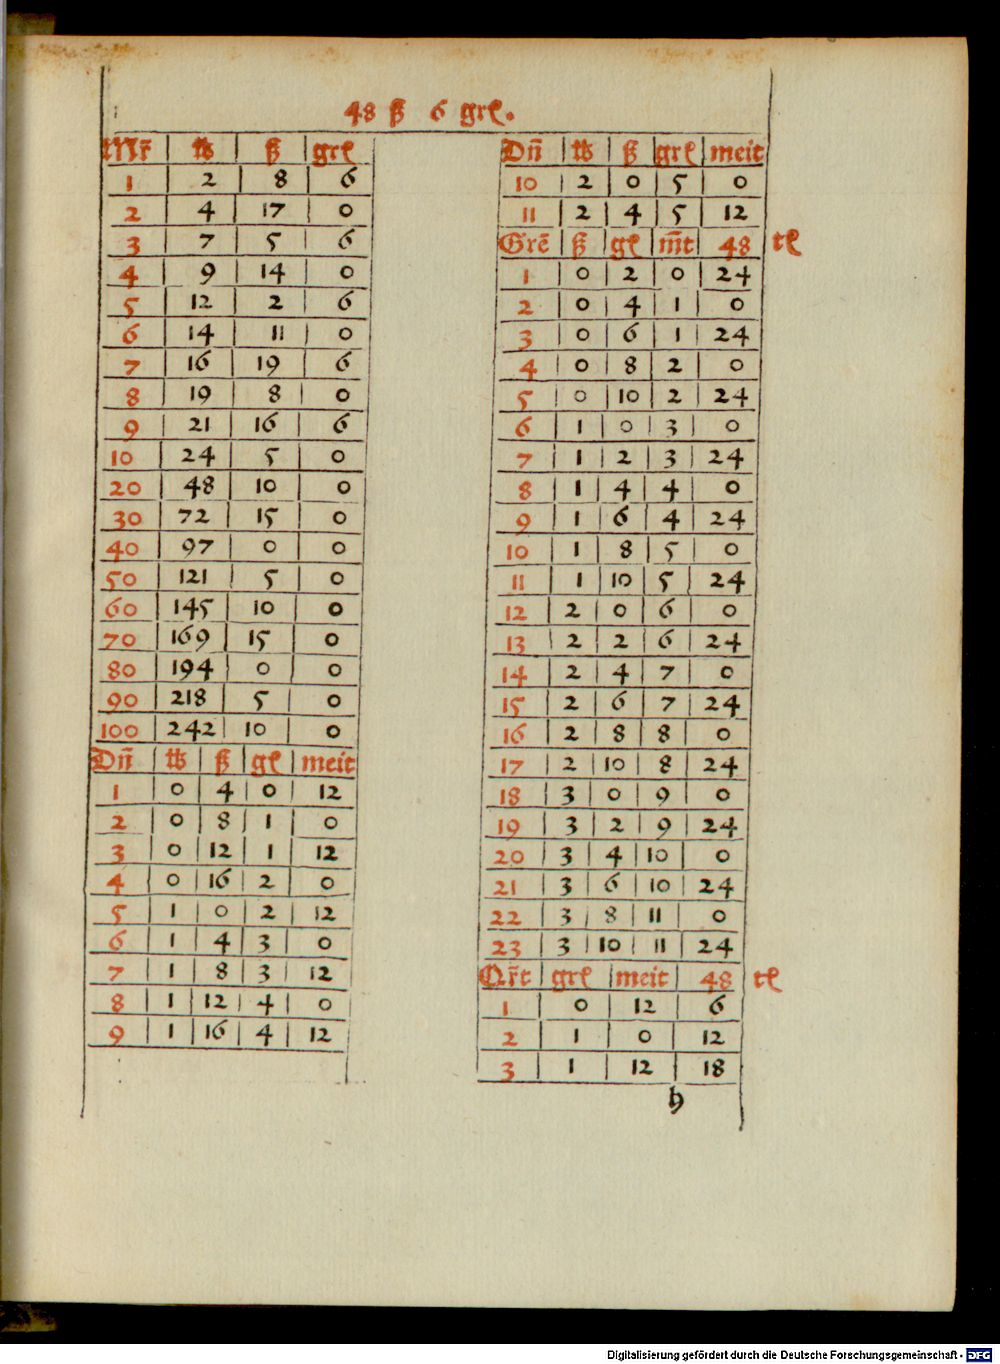 48 ß 6 grꝭ.
Mr̄ | lb | ß | grꝭ
1 | 2 | 8 | 6
2 | 4 | 17 | 0
3 | 7 | 5 | 6
4 | 9 | 14 | 0
5 | 12 | 2 | 6
6 | 14 | 11 | 0
7 | 16 | 19 | 6
8 | 19 | 8 | 0
9 | 21 | 16 | 6
10 | 24 | 5 | 0
20 | 48 | 10 | 0
30 | 72 | 15 | 0
40 | 97 | 0 | 0
50 | 121 | 5 | 0
60 | 145 | 10 | 0
70 | 169 | 15 | 0
80 | 194 | 0 | 0
90 | 218 | 5 | 0
100 | 242 | 10 | 0
Dn̄ | lb | ß | gꝭ | meit
1 | 0 | 4 | 0 | 12
2 | 0 | 8 | 1 | 0
3 | 0 | 12 | 1 | 12
4 | 0 | 16 | 2 | 0
5 | 1 | 0 | 2 | 12
6 | 1 | 4 | 3 | 0
7 | 1 | 8 | 3 | 12
8 | 1 | 12 | 4 | 0
9 | 1 | 16 | 4 | 12
Dn̄ | lb | ß | grꝭ | meit
10 | 2 | 0 | 5 | 0
11 | 2 | 4 | 5 | 12
Grē | ß | gꝭ | m̄t | 48 tꝭ
1 | 0 | 2 | 0 | 24
2 | 0 | 4 | 1 | 0
3 | 0 | 6 | 1 | 24
4 | 0 | 8 | 2 | 0
5 | 0 | 10 | 2 | 24
6 | 1 | 0 | 3 | 0
7 | 1 | 2 | 3 | 24
8 | 1 | 4 | 4 | 0
9 | 1 | 6 | 4 | 24
10 | 1 | 8 | 5 | 0
11 | 1 | 10 | 5 | 24
12 | 2 | 0 | 6 | 0
13 | 2 | 2 | 6 | 24
14 | 2 | 4 | 7 | 0
15 | 2 | 6 | 7 | 24
16 | 2 | 8 | 8 | 0
17 | 2 | 10 | 8 | 24
18 | 3 | 0 | 9 | 0
19 | 3 | 2 | 9 | 24
20 | 3 | 4 | 10 | 0
21 | 3 | 6 | 10 | 24
22 | 3 | 8 | 11 | 0
23 | 3 | 10 | 11 | 24
Qr̄t | grꝭ | meit | 48 tꝭ
1 | 0 | 12 | 6
2 | 1 | 0 | 12
3 | 1 | 12 | 18
h
Digitalisierung gefördert durch die Deutsche Forschungsgemeinschaft - DFG